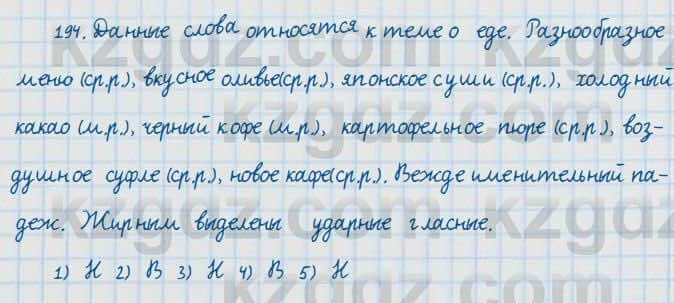 194. Данные слова относятся к теме о еде. Разнообразное
меню (ср.р.), вкусное оливье(ср.р.), японское суши (ср.р.), холодный
какао (м.р.), черный кофе (м.р), картофельное пюре (ср.р), воз-
душное суфле (ср.р.), новое кафе(ср.р.). Вежде именительный па-
деж. Жирным выделены ударные гласные.
1) Н 2) В 3) Н 4) В 5) Н